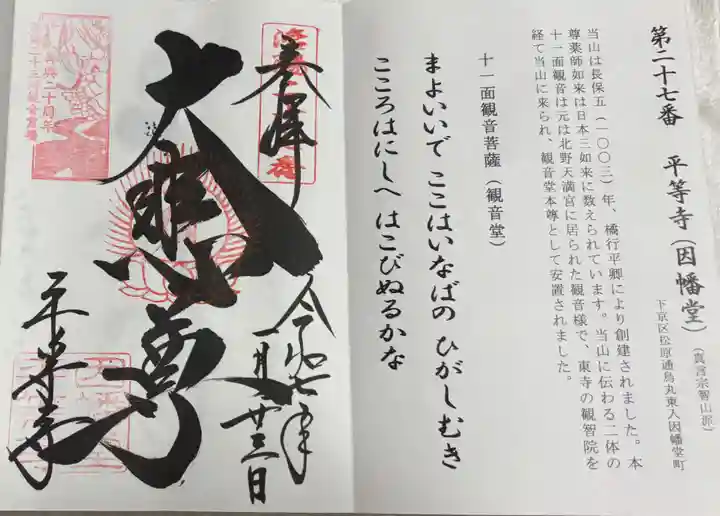 第二十七番　平等寺（因幡堂）（真言宗智山派）
下京区松原通烏丸東入因幡堂町
当山は長保五（一〇〇三）年、橘行平卿により創建されました。本
尊薬師如来は日本三如来に数えられています。当山に伝わる二体の
十一面観音は元は北野天満宮に居られた観音様で、東寺の観智院を
経て当山に来られ、観音堂本尊として安置されました。
十一面観音菩薩（観音堂）
まよいいで ここはいなばの ひがしむき
こころはにしへ はこびぬるかな
奉拝
令和七年
一月廿三日
大悲尊
平等寺